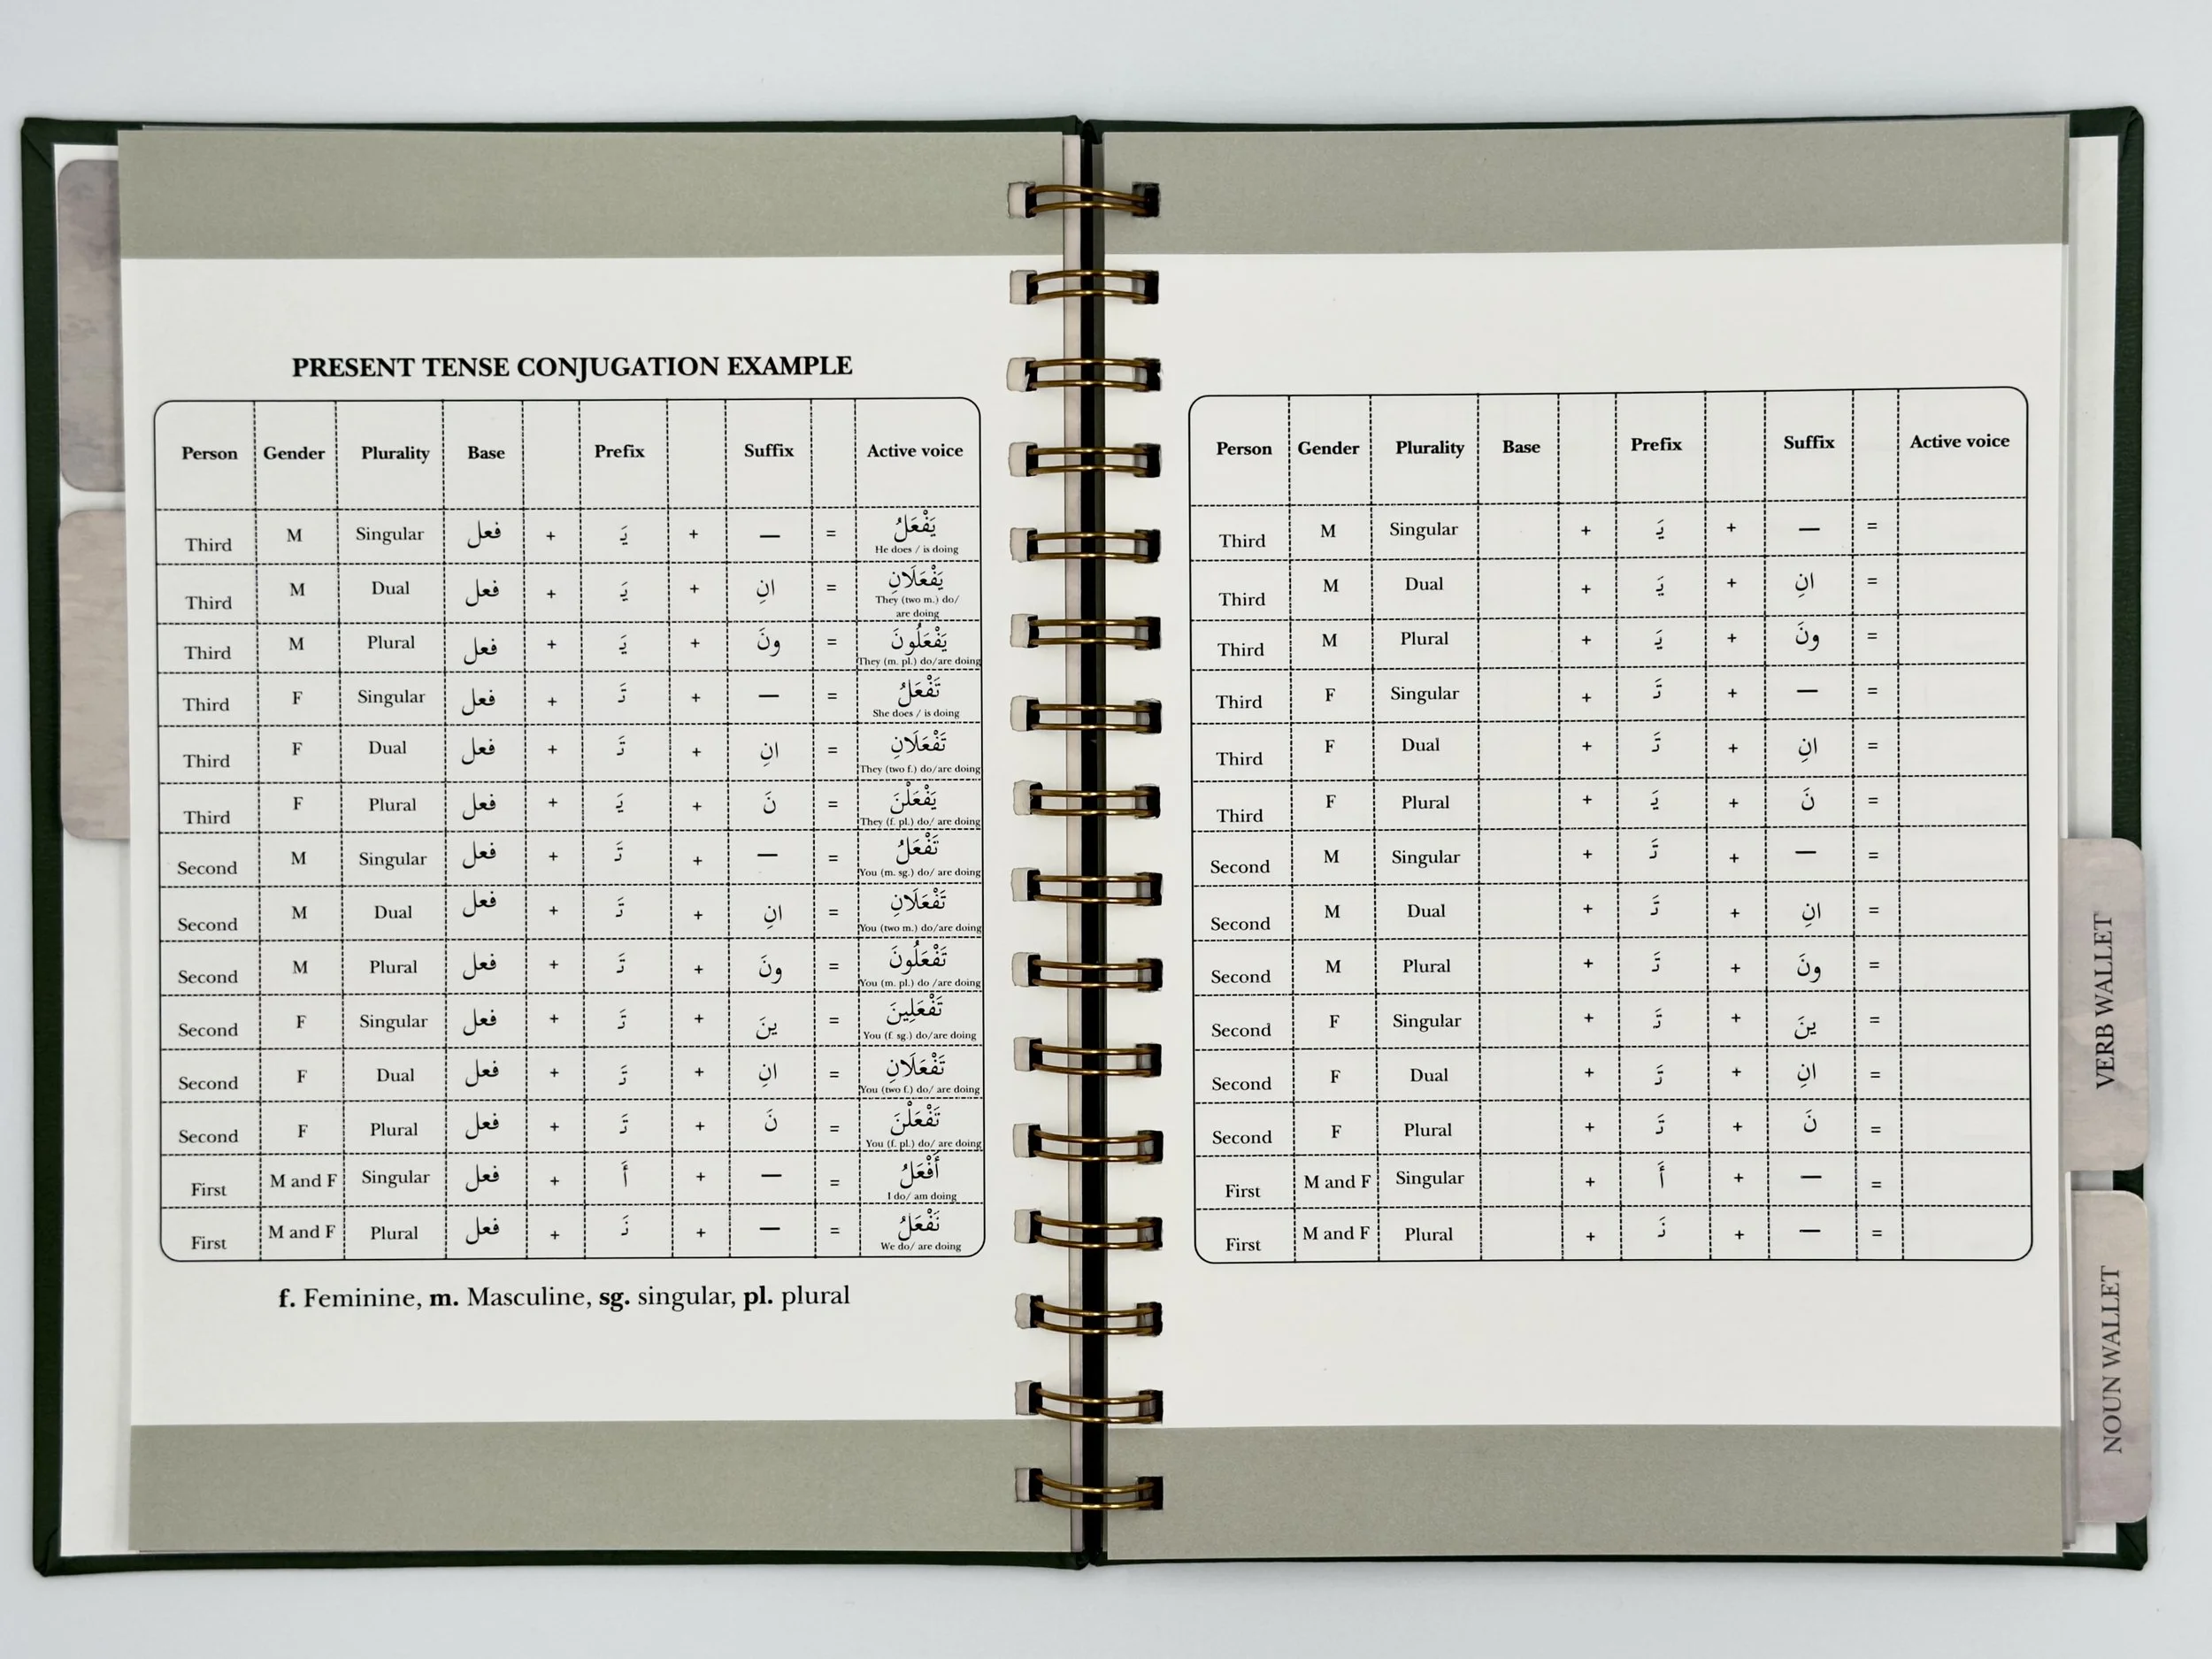 PRESENT TENSE CONJUGATION EXAMPLE
Person Gender Plurality Base Prefix Suffix Active voice
Third M Singular فعل + يَ + — = يَفْعَلُ
He does / is doing
Third M Dual فعل + يَ + انِ = يَفْعَلَانِ
They (two m.) do/
are doing
Third M Plural فعل + يَ + ونَ = يَفْعَلُونَ
They (m. pl.) do/are doing
Third F Singular فعل + تَ + — = تَفْعَلُ
She does / is doing
Third F Dual فعل + تَ + انِ = تَفْعَلَانِ
They (two f.) do/are doing
Third F Plural فعل + يَ + نَ = يَفْعَلْنَ
They (f. pl.) do/ are doing
Second M Singular فعل + تَ + — = تَفْعَلُ
You (m. sg.) do/ are doing
Second M Dual فعل + تَ + انِ = تَفْعَلَانِ
You (two m.) do/are doing
Second M Plural فعل + تَ + ونَ = تَفْعَلُونَ
You (m. pl.) do /are doing
Second F Singular فعل + تَ + ينَ = تَفْعَلِينَ
You (f. sg.) do/are doing
Second F Dual فعل + تَ + انِ = تَفْعَلَانِ
You (two f.) do/ are doing
Second F Plural فعل + تَ + نَ = تَفْعَلْنَ
You (f. pl.) do/ are doing
First M and F Singular فعل + أَ + — = أَفْعَلُ
I do/ am doing
First M and F Plural فعل + نَ + — = نَفْعَلُ
We do/ are doing
f. Feminine, m. Masculine, sg. singular, pl. plural
Person Gender Plurality Base Prefix Suffix Active voice
Third M Singular + يَ + — =
Third M Dual + يَ + انِ =
Third M Plural + يَ + ونَ =
Third F Singular + تَ + — =
Third F Dual + تَ + انِ =
Third F Plural + يَ + نَ =
Second M Singular + تَ + — =
Second M Dual + تَ + انِ =
Second M Plural + تَ + ونَ =
Second F Singular + تَ + ينَ =
Second F Dual + تَ + انِ =
Second F Plural + تَ + نَ =
First M and F Singular + أَ + — =
First M and F Plural + نَ + — =
VERB WALLET
NOUN WALLET